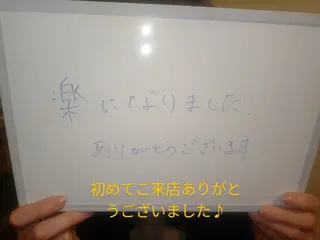 楽になりました。
ありがとうございます
初めてご来店ありがと
うございました♪